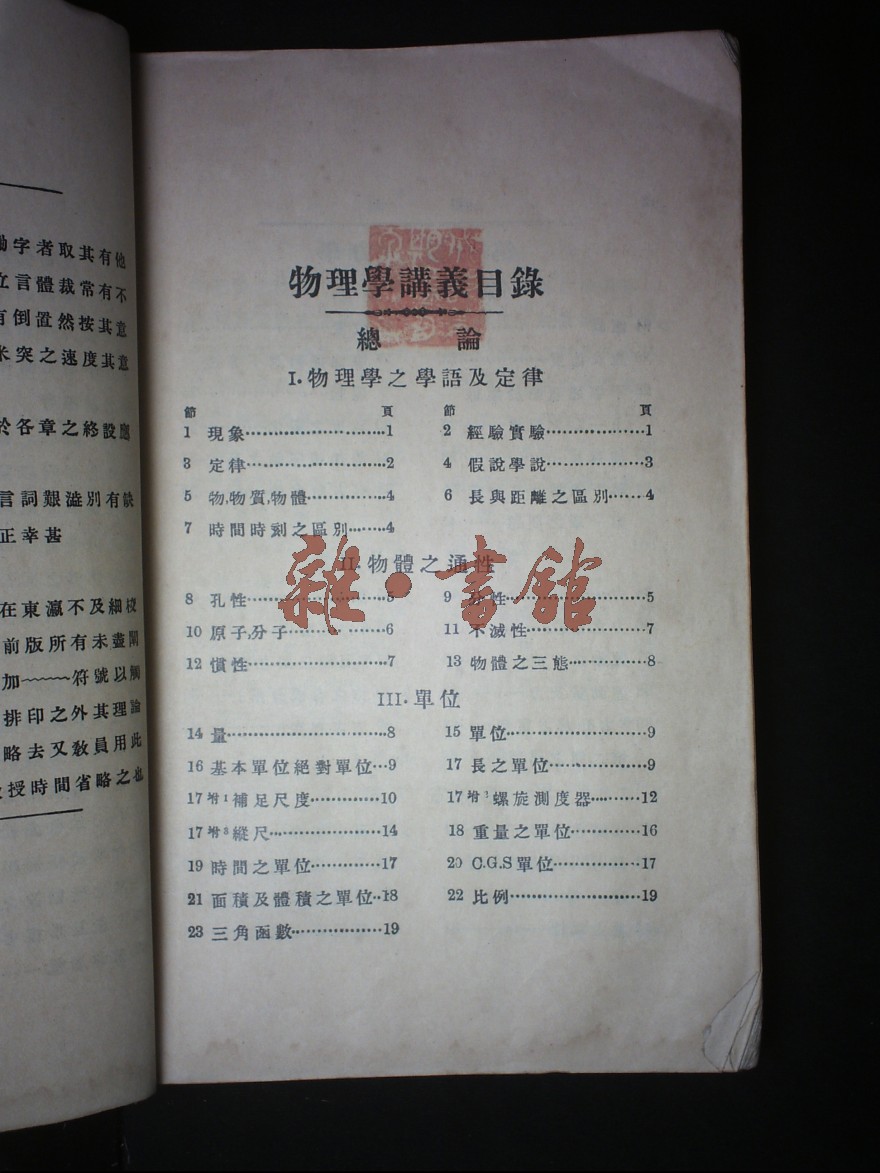 他字者取其有他
立言體裁常有不
有倒置然按其意
米突之速度其意
於各章之終設應
言詞艱澁別有缺
正幸甚
在東瀛不及細校
前版所有未盡闡
加~~~~~符號以觸
排印之外其理論
略去又敎員用此
授時間省略之也
物理學講義目錄
總 論
I.物理學之學語及定律
節 頁 節 頁
1 現象……………………1 2 經驗實驗………………1
3 定律……………………2 4 假說學說………………3
5 物,物質,物體…………4 6 長與距離之區別……4
7 時間時刻之區別……4
II.物體之通性
8 孔性……………………5 9 性……………………5
10 原子,分子……………6 11 不滅性………………7
12 慣性…………………7 13 物體之三態…………8
III.單位
14 量……………………8 15 單位…………………9
16 基本單位絕對單位…9 17 長之單位……………9
17增1補足尺度…………10 17增2螺旋測度器………12
17增3縱尺………………14 18 重量之單位…………16
19 時間之單位…………17 20 C.G.S單位……………17
21 面積及體積之單位…18 22 比例…………………19
23 三角函數……………19
雜·書館